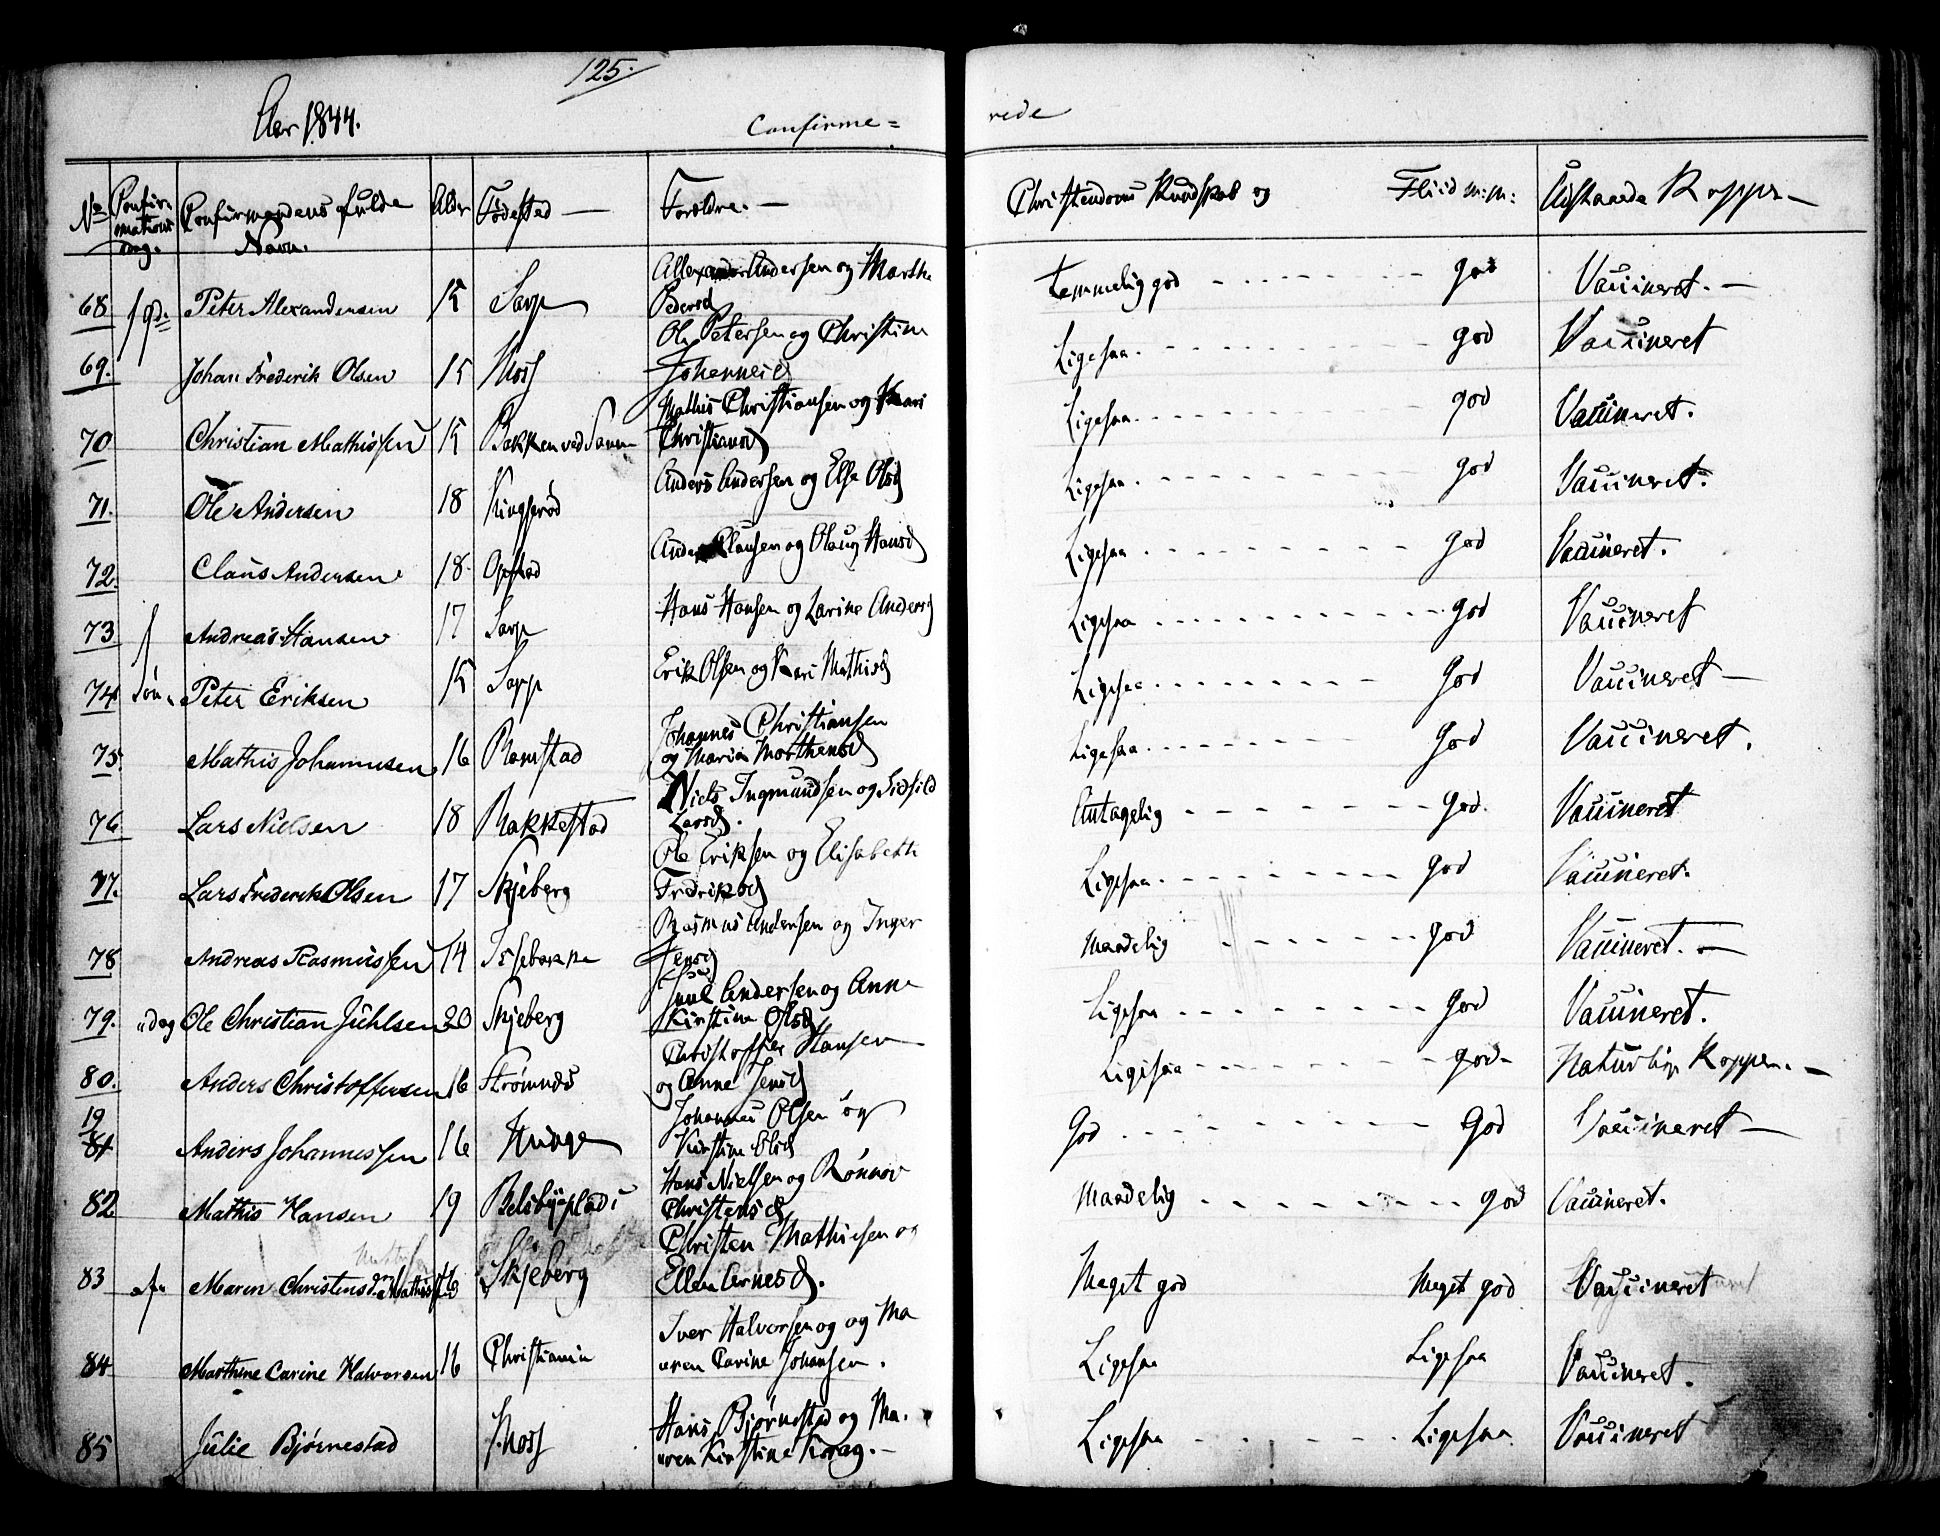 125.
Aar 1844.
Confirme=
rede
No Confir- Confirmandens fulde Alder Fødested — Forældre. — Christendoms Kundskab og Fliid m: m: Udstaaede Kopper —
mations Navn.
dag.
Allexander Andersen og Marthe
68 Peter Alexandersen 15 Sarp Pedersd temmelig god god Vaccineret. —
Ole Petersen og Christine
69. Johan Frederik Olsen 15 Moss Johannesd Ligesaa. god Vaccineret
Mathis Christiansen og Kari
70 Christian Mathissen 15 Bakken ved Sann Christiansd Ligesaa. god Vaccineret.
71. Ole Andersen 18 Kingsrød Anders Andersen og Else Olsd Ligesaa. god Vaccineret.
72. Claus Andersen 18 Opstad Anders Clausen og Olaug Hansd Ligesaa god Vaccineret.
73 Andreas Hansen 17 Sarp Hans Hansen og Larine Andersd Ligesaa god Vaccineret
74 Søn. Peter Eriksen 15 Sarp Erik Olsen og Kari Mathisd Ligesaa god Vaccineret —
Johannes Christiansen
75. Mathis Johannesen 16 Ramstad og Maria Morthensd Ligesaa. god Vaccineret.
Niels Ingmundsen og Sidsild
76 Lars Nielsen 18 Rakkestad Larsd. Antagelig god. Vaccineret
Ole Eriksen og Elisabeth
77. Lars Frederik Olsen 17 Skjeberg Fredriksd Ligesaa. god Vaccineret.
Rasmus Andersen og Inger
78 Andreas Rasmussen 14 Isebakke Jensd Maadelig god Vaccineret. —
Juul Andersen og Anne
79. Ole Christian Jühlsen 20 Skjeberg Kirstine Olsd Ligesaa god Vaccineret.
Christoffer Hansen
80. Anders Christoffersen 16 Strømnes og Anne Jensd Ligesaa god Naturlige Kopper. —
19 Johannes Olsen og
81 Anders Johannessen 16 Kirstine Olsd God God Vaccineret —
Hans Nielsen og Rønnov
82 Mathis Hansen 19 Christensd Maadelig god Vaccineret.
Christen Mathiesen og
83 Maren Christensd. 16 Skjeberg Ellen Arnesd. Meget god Meget god Vaccineret
Iver Halvorsen og og Ma
84 Marthine Carine Halvorsen 16 Christiania uren Carine Johansen. Ligesaa Ligesaa Vaccineret.
Hans Bjørnestad og Ma.
85 Julie Bjørnestad Moss uren Kirstine Krag. — Ligesaa Ligesaa Vaccineret